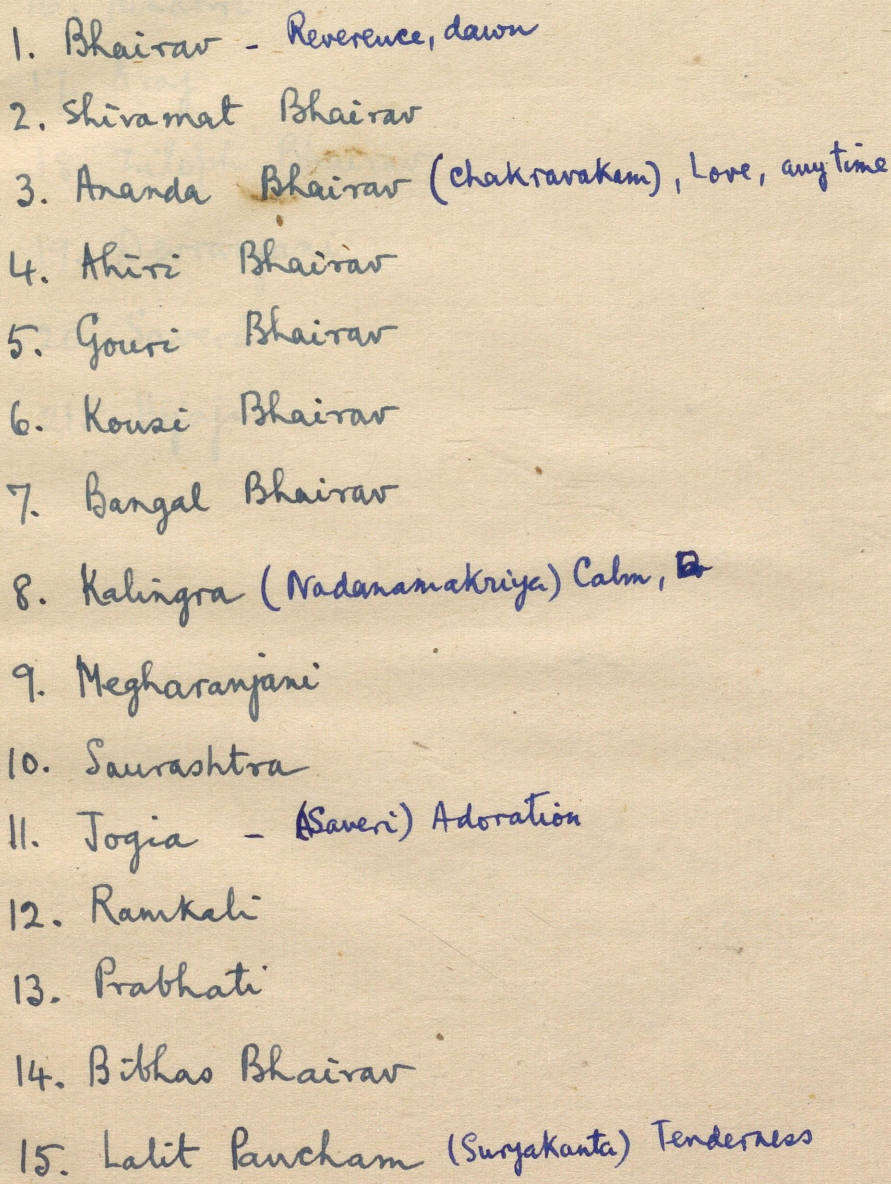 1. Bhairav - Reverence, dawn
2. Shivamat Bhairav
3. Ananda Bhairav (Chakravakam), Love, any time
4. Ahiri Bhairav
5. Gouri Bhairav
6. Kousi Bhairav
7. Bangal Bhairav
8. Kalingra (Nadanamakriya) Calm,
9. Megharanjani
10. Saurashtra
11. Jogia - (Saveri) Adoration
12. Ramkali
13. Prabhati
14. Bibhas Bhairav
15. Lalit Pancham (Suryakanta) Tenderness